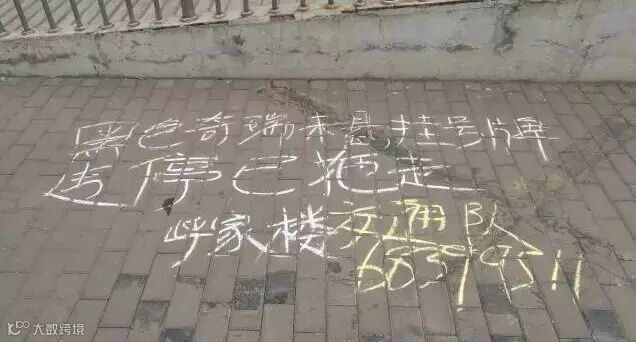 黑色奇瑞未悬挂号牌
违停已拖走
呼家楼交通队
68399311
K100 大数跨境